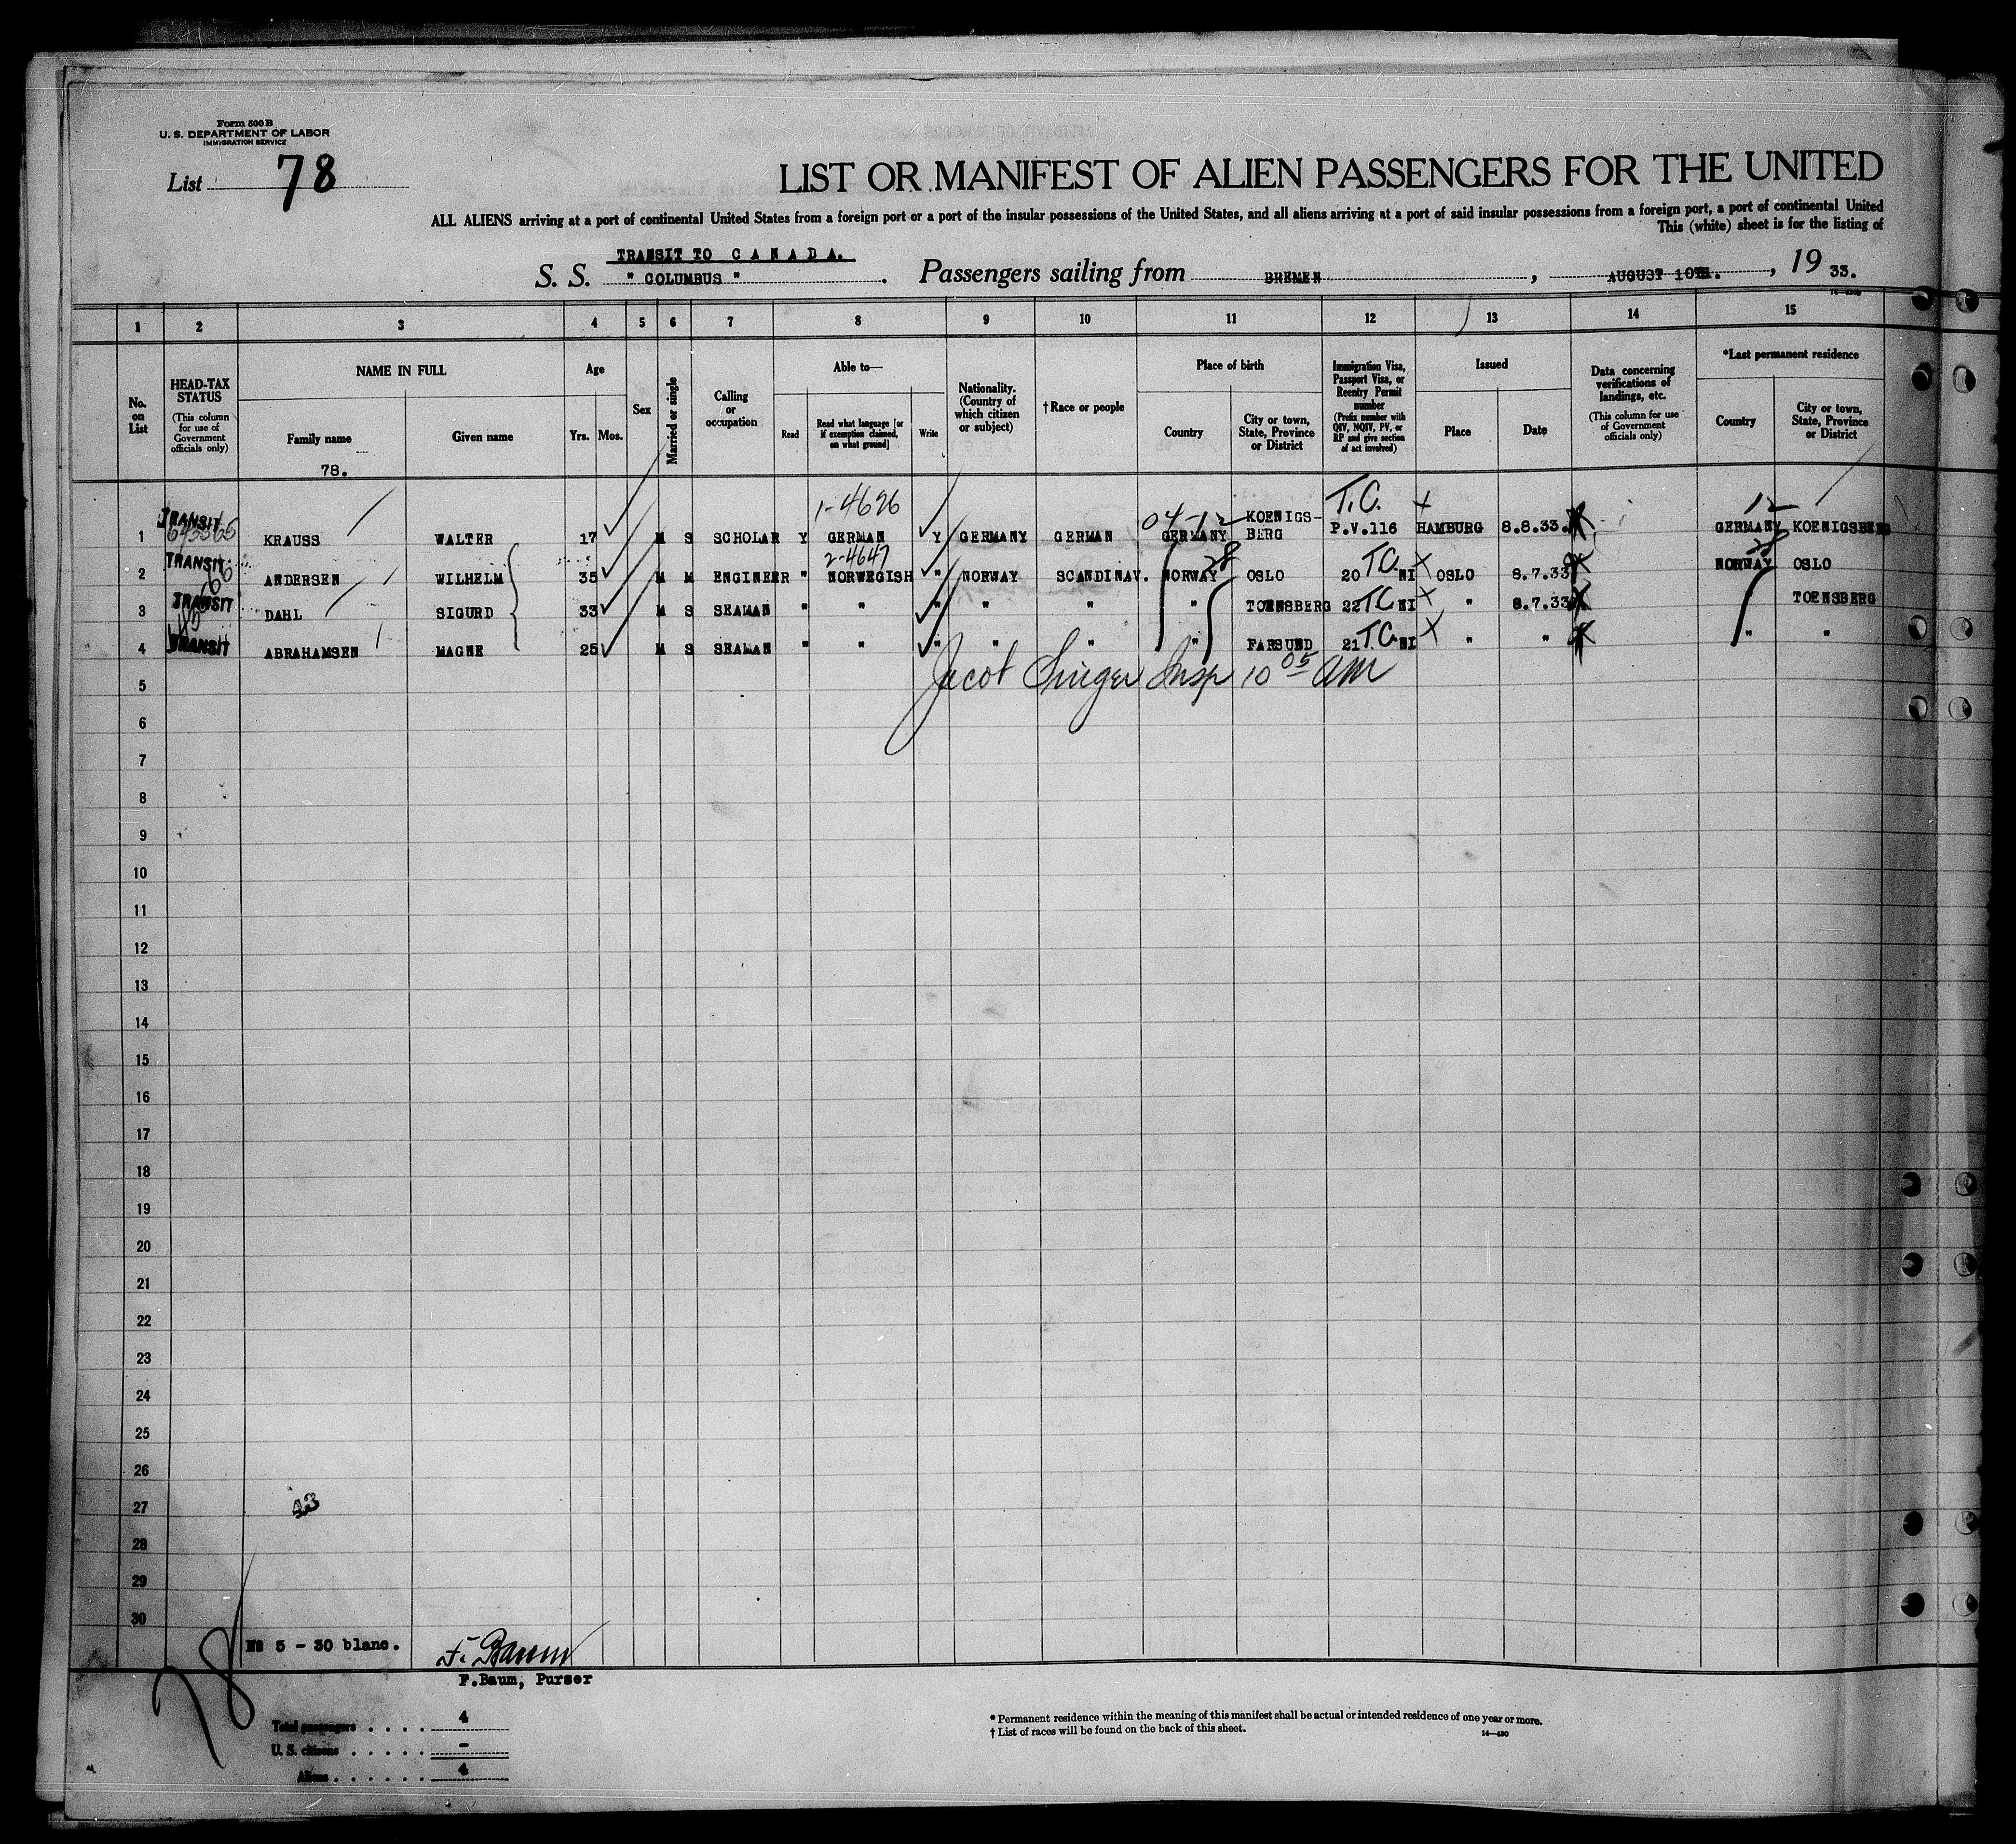 Form 500 B
U. S. DEPARTMENT OF LABOR
IMMIGRATION SERVICE
List 78
LIST OR MANIFEST OF ALIEN PASSENGERS FOR THE UNITED
ALL ALIENS arriving at a port of continental United States from a foreign port or a port of the insular possessions of the United States, and all aliens arriving at a port of said insular possessions from a foreign port, a port of continental United
This (white) sheet is for the listing of
TRANSIT TO CANADA.
S. S. " COLUMBUS ". Passengers sailing from BREMEN, AUGUST 10TH., 19 33.
1 2 3 4 5 6 7 8 9 10 11 12 13 14 15
No. on List
HEAD-TAX STATUS
(This column for use of Government officials only)
NAME IN FULL
Family name
Given name
78.
Age
Yrs. Mos.
Sex
Married or single
Calling or occupation
Able to—
Read
Read what language [or if exemption claimed, on what ground]
Write
Nationality. (Country of which citizen or subject)
† Race or people
Place of birth
Country
City or town, State, Province or District
Immigration Visa, Passport Visa, or Reentry Permit number
(Prefix number with QIV, NQIV, PV, or RP and give section of act involved)
Issued
Place
Date
Data concerning verifications of landings, etc.
(This column for use of Government officials only)
*Last permanent residence
Country
City or town, State, Province or District
1-4696 04-12 T.C. 12
1 TRANSIT KRAUSS WALTER 17 M S SCHOLAR Y GERMAN Y GERMANY GERMAN GERMANY KOENIGS-BERG P.V.116 HAMBURG 8.8.33. GERMANY KOENIGSBERG
2-4647 28 28
2 TRANSIT ANDERSEN WILHELM 35 M M ENGINEER " NORWEGISH " NORWAY SCANDINAV. NORWAY OSLO 20 T.C. NI OSLO 8.7.33 NORWAY OSLO
3 TRANSIT DAHL SIGURD 33 M S SEAMAN " " " " " " TOENSBERG 22 T.C. NI " 8.7.33 TOENSBERG
4 TRANSIT ABRAHAMSEN MAGNE 25 M S SEAMAN " " " " " " FARSUND 21 T.C. NI " " " "
Jacob Singer Insp 10 05 am
5
6
7
8
9
10
11
12
13
14
15
16
17
18
19
20
21
22
23
24
25
26
27 43
28
29
30
Nº 5 - 30 blanc.
F. Baum
F.Baum, Purser
78
Total passengers . . . . 4
U. S. citizens . . . . . -
Aliens . . . . . . 4
* Permanent residence within the meaning of this manifest shall be actual or intended residence of one year or more.
† List of races will be found on the back of this sheet.
14—430